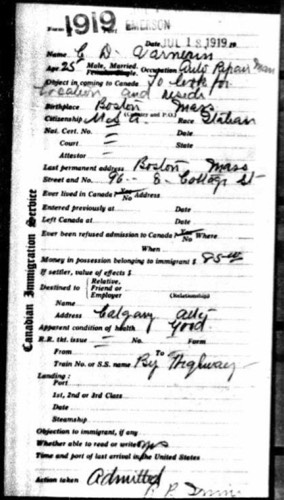 Form 1919 EMERSON
JUL 18 1919 19
Name C D Varnerin
Age 25 Male, Married. Female Single. Occupation Auto Repair Man
Object in coming to Canada To look for
Location and
Birthplace Boston Mass
(Country and P.O.)
Citizenship U.S.A. Race Italian
Nat. Cert. No. Date
Court State
Attestor
Last permanent address Boston Mass
Street and No. 96 - E. Cottage St
Ever lived in Canada Yes No Address
Entered previously at Date
Left Canada at Date
Ever been refused admission to Canada Yes No Where
When
Money in possession belonging to immigrant $ 85.00
If settler, value of effects $
Destined to Relative, Friend or Employer (Relationship)
Name
Address Calgary Alta
Apparent condition of health Good
R.R. tkt. issue No. Form
From To
Train No. or S.S. name By Highway
Landing:
Port
1st, 2nd or 3rd Class
Date
Steamship
Objection to immigrant, if any
Whether able to read or write Yes
Time and port of last arrival in the United States
Action taken Admitted
Canadian Immigration Service